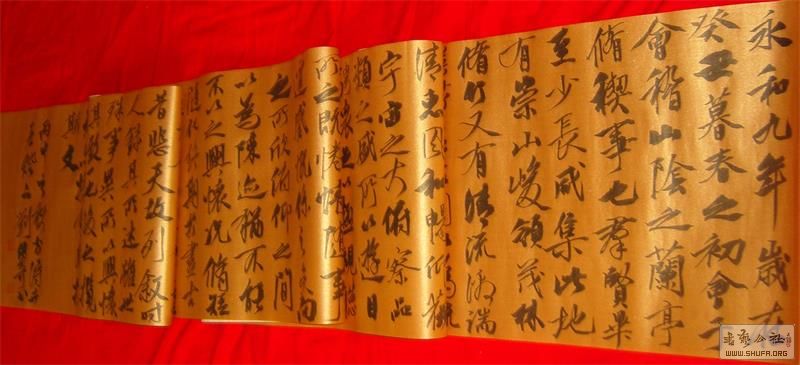 永和九年歲在
癸丑暮春之初會于
會稽山陰之蘭亭
脩禊事也群賢畢
至少長咸集此地
有崇山峻領茂林
脩竹又有清流激湍
清惠風和暢仰觀
宇宙之大俯察品
類之盛所以遊目
所之既惓情隨事
遷感慨係之矣向
之所欣俯仰之間
以為陳迹猶不能
不以之興懷況脩短
隨化終期於盡古
昔悲夫故列敘時
人錄其所述雖世
殊事異所以興懷
其致一也後之攬
斯文
書藝公社
WWW.SHUFA.ORG